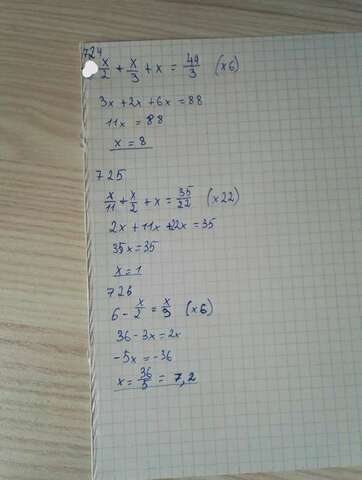 724
x/2 + x/3 + x = 44/3 (x6)
3x + 2x + 6x = 88
11x = 88
x = 8
725
x/11 + x/2 + x = 35/22 (x22)
2x + 11x + 22x = 35
35x = 35
x = 1
726
6 - x/2 = x/3 (x6)
36 - 3x = 2x
-5x = -36
x = 36/5 = 7,2